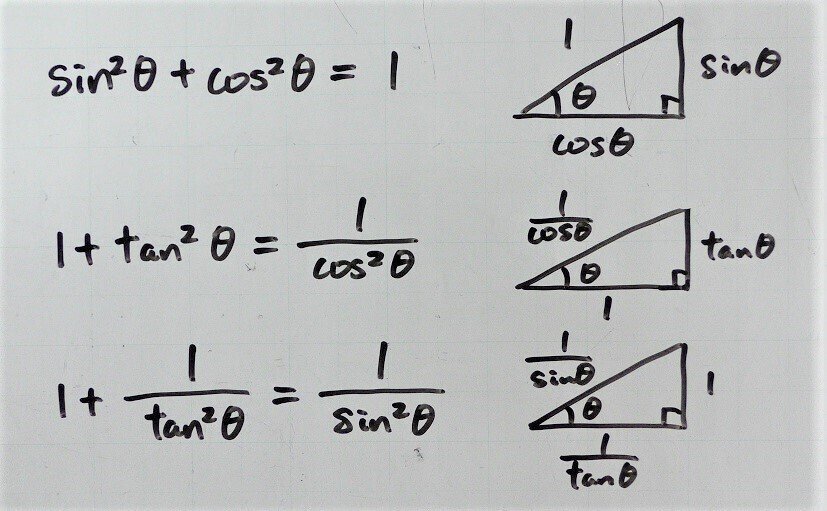 sin²θ + cos²θ = 1
1
θ
sinθ
cosθ
1 + tan²θ = 1/cos²θ
1/cosθ
θ
tanθ
1
1 + 1/tan²θ = 1/sin²θ
1/sinθ
θ
1
1/tanθ